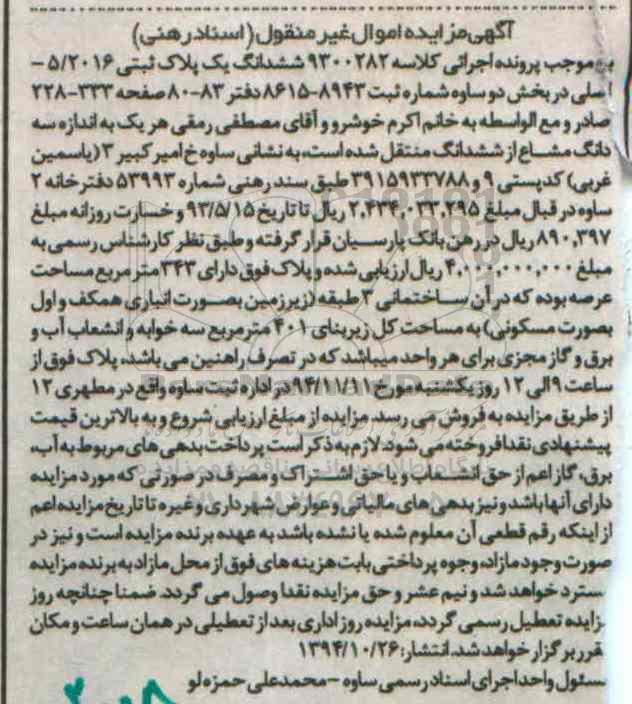 آگهی مزایده اموال غیر منقول (اسناد رهنی)
موجب پرونده اجرائی کلاسه ۹۳۰۰۲۸۲ ششدانگ یک پلاک ثبتی ۵/۲۰۱۶ –
اصلی در بخش دو ساوه شماره ثبت ۸۹۴۳-۸۶۱۵ دفتر ۸۳-۸۰ صفحه ۳۳۳-۲۲۸
صادر و مع الواسطه به خانم اکرم خوشرو و آقای مصطفی رمقی هر یک به اندازه سه
دانگ مشاع از ششدانگ منتقل شده است، به نشانی ساوه خ امیر کبیر ۳ (یاسمین
غربی) کدپستی ۹ و ۳۹۱۵۹۳۳۷۸۸ طبق سند رهنی شماره ۵۳۹۹۳ دفترخانه ۲
ساوه در قبال مبلغ ۲,۴۳۴,۰۳۳,۲۹۵ ریال تا تاریخ ۹۳/۵/۱۵ و خسارت روزانه مبلغ
۸۹۰,۳۹۷ ریال در رهن بانک پارسیان قرار گرفته و طبق نظر کارشناس رسمی به
مبلغ ۴,۰۰۰,۰۰۰,۰۰۰ ریال ارزیابی شده و پلاک فوق دارای ۳۴۳ متر مربع مساحت
عرصه بوده که در آن ساختمانی ۳ طبقه (زیرزمین بصورت انباری همکف و اول
بصورت مسکونی) به مساحت کل زیربنای ۴۰۱ مترمربع سه خوابه و انشعاب آب و
برق و گاز مجزی برای هر واحد میباشد که در تصرف راهنین می باشد، پلاک فوق از
ساعت ۹ الی ۱۲ روز یکشنبه مورخ ۹۴/۱۱/۱۱ در اداره ثبت ساوه واقع در مطهری ۱۲
از طریق مزایده به فروش می رسد. مزایده از مبلغ ارزیابی شروع و به بالاترین قیمت
پیشنهادی نقدا فروخته می شود. لازم به ذکر است پرداخت بدهی های مربوط به آب،
برق، گاز اعم از حق انشعاب و یا حق اشتراک و مصرف در صورتی که مورد مزایده
دارای آنها باشد و نیز بدهی های مالیاتی و عوارض شهرداری و غیره تا تاریخ مزایده اعم
از اینکه رقم قطعی آن معلوم شده یا نشده باشد به عهده برنده مزایده است و نیز در
صورت وجود مازاد، وجوه پرداختی بابت هزینه های فوق از محل مازاد به برنده مزایده
مسترد خواهد شد و نیم عشر و حق مزایده نقدا وصول می گردد. ضمنا چنانچه روز
مزایده تعطیل رسمی گردد، مزایده روز اداری بعد از تعطیلی در همان ساعت و مکان
مقرر برگزار خواهد شد. انتشار: ۱۳۹۴/۱۰/۲۶
مسئول واحد اجرای اسناد رسمی ساوه – محمدعلی حمزه لو